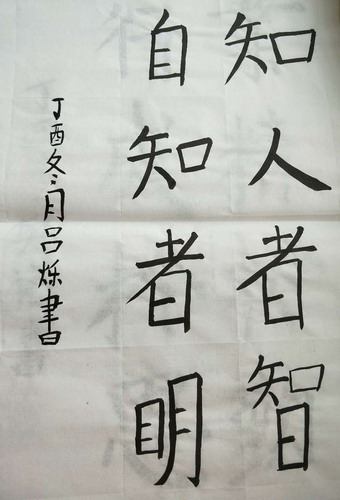 知人者智
自知者明
丁酉冬月吕烁書